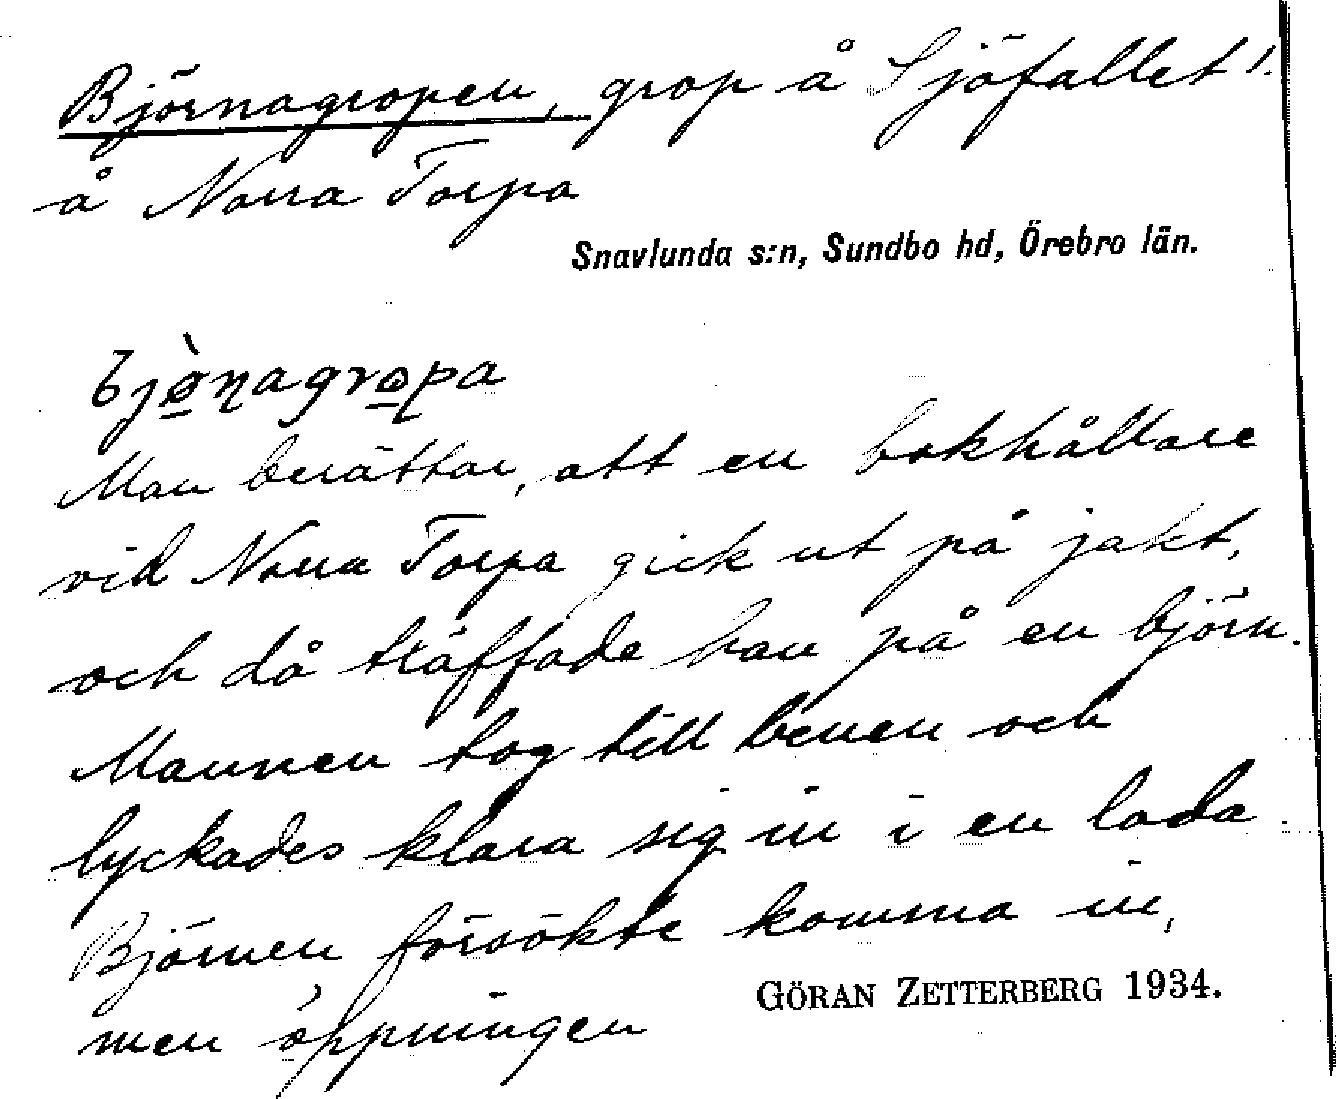 Björnagropen, grop å Sjöfallet 1.
å Norra Torpa
Snavlunda s:n, Sundbo hd, Örebro län.
bjø̀nagrɷpa
Man berättar, att en bokhållare
vid Norra Torpa gick ut på jakt,
och då träffade han på en björn.
Mannen tog till benen och
lyckades klara sig in i en lada.
Björnen försökte komma in,
men öppningen
GÖRAN ZETTERBERG 1934.